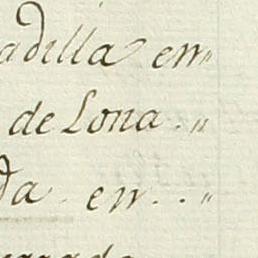 adilla en "
de Lona . "
da en . . "